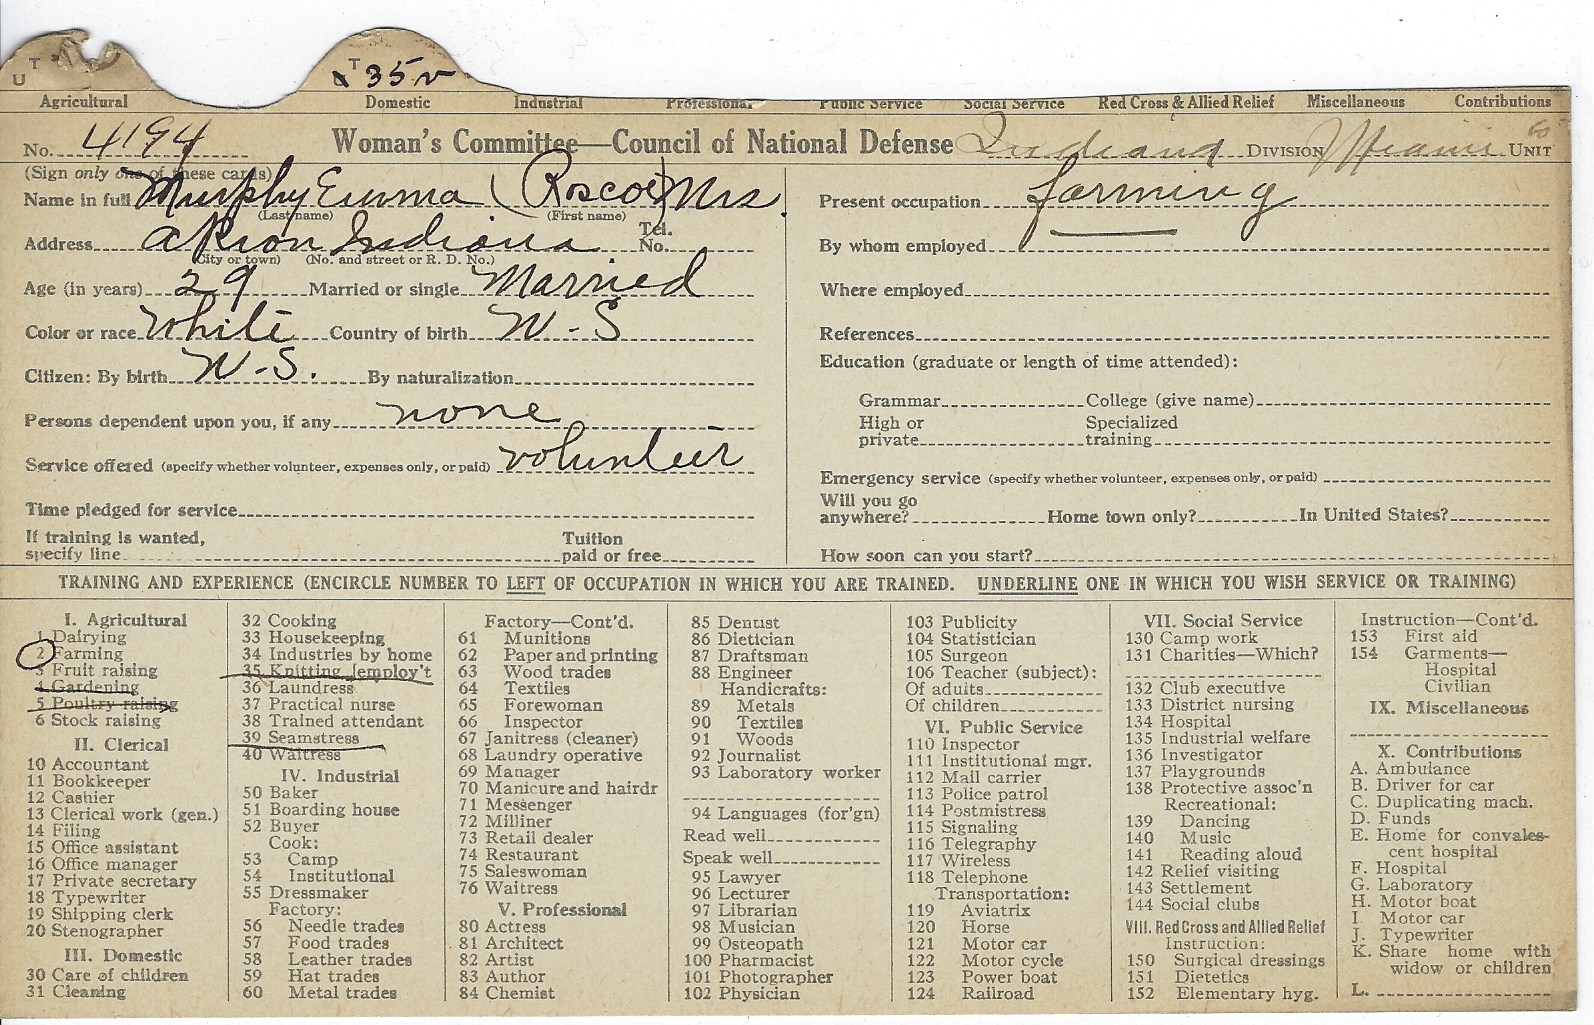 T
U
T
35 v
Agricultural Domestic Industrial Professional Public Service Social Service Red Cross & Allied Relief Miscellaneous Contributions
No. 4194 Woman's Committee—Council of National Defense Indiana DIVISION Miami UNIT
60
(Sign only one of these cards)
Name in full Murphy Emma (Roscoe) Mrs.
(Last name) (First name)
Address Akron Indiana Tel. No.
(City or town) (No. and street or R. D. No.)
Age (in years) 29 Married or single Married
Color or race White Country of birth U-S
Citizen: By birth U.S. By naturalization
Persons dependent upon you, if any none
Service offered (specify whether volunteer, expenses only, or paid) volunteer
Time pledged for service
If training is wanted,
specify line
Tuition
paid or free
Present occupation farming
By whom employed
Where employed
References
Education (graduate or length of time attended):
Grammar College (give name)
High or
private
Specialized
training
Emergency service (specify whether volunteer, expenses only, or paid)
Will you go
anywhere? Home town only? In United States?
How soon can you start?
TRAINING AND EXPERIENCE (ENCIRCLE NUMBER TO LEFT OF OCCUPATION IN WHICH YOU ARE TRAINED. UNDERLINE ONE IN WHICH YOU WISH SERVICE OR TRAINING)
I. Agricultural
1 Dairying
2 Farming
3 Fruit raising
4 Gardening
5 Poultry raising
6 Stock raising
II. Clerical
10 Accountant
11 Bookkeeper
12 Cashier
13 Clerical work (gen.)
14 Filing
15 Office assistant
16 Office manager
17 Private secretary
18 Typewriter
19 Shipping clerk
20 Stenographer
III. Domestic
30 Care of children
31 Cleaning
32 Cooking
33 Housekeeping
34 Industries by home
35 Knitting [employ't
36 Laundress
37 Practical nurse
38 Trained attendant
39 Seamstress
40 Waitress
IV. Industrial
50 Baker
51 Boarding house
52 Buyer
Cook:
53 Camp
54 Institutional
55 Dressmaker
Factory:
56 Needle trades
57 Food trades
58 Leather trades
59 Hat trades
60 Metal trades
Factory—Cont'd.
61 Munitions
62 Paper and printing
63 Wood trades
64 Textiles
65 Forewoman
66 Inspector
67 Janitress (cleaner)
68 Laundry operative
69 Manager
70 Manicure and hairdr
71 Messenger
72 Milliner
73 Retail dealer
74 Restaurant
75 Saleswoman
76 Waitress
V. Professional
80 Actress
81 Architect
82 Artist
83 Author
84 Chemist
85 Dentist
86 Dietician
87 Draftsman
88 Engineer
Handicrafts:
89 Metals
90 Textiles
91 Woods
92 Journalist
93 Laboratory worker
94 Languages (for'gn)
Read well
Speak well
95 Lawyer
96 Lecturer
97 Librarian
98 Musician
99 Osteopath
100 Pharmacist
101 Photographer
102 Physician
103 Publicity
104 Statistician
105 Surgeon
106 Teacher (subject):
Of adults
Of children
VI. Public Service
110 Inspector
111 Institutional mgr.
112 Mail carrier
113 Police patrol
114 Postmistress
115 Signaling
116 Telegraphy
117 Wireless
118 Telephone
Transportation:
119 Aviatrix
120 Horse
121 Motor car
122 Motor cycle
123 Power boat
124 Railroad
VII. Social Service
130 Camp work
131 Charities—Which?
132 Club executive
133 District nursing
134 Hospital
135 Industrial welfare
136 Investigator
137 Playgrounds
138 Protective assoc'n
Recreational:
139 Dancing
140 Music
141 Reading aloud
142 Relief visiting
143 Settlement
144 Social clubs
VIII. Red Cross and Allied Relief
Instruction:
150 Surgical dressings
151 Dietetics
152 Elementary hyg.
Instruction—Cont'd.
153 First aid
154 Garments—
Hospital
Civilian
IX. Miscellaneous
X. Contributions
A. Ambulance
B. Driver for car
C. Duplicating mach.
D. Funds
E. Home for convales-
cent hospital
F. Hospital
G. Laboratory
H. Motor boat
I. Motor car
J. Typewriter
K. Share home with
widow or children
L.